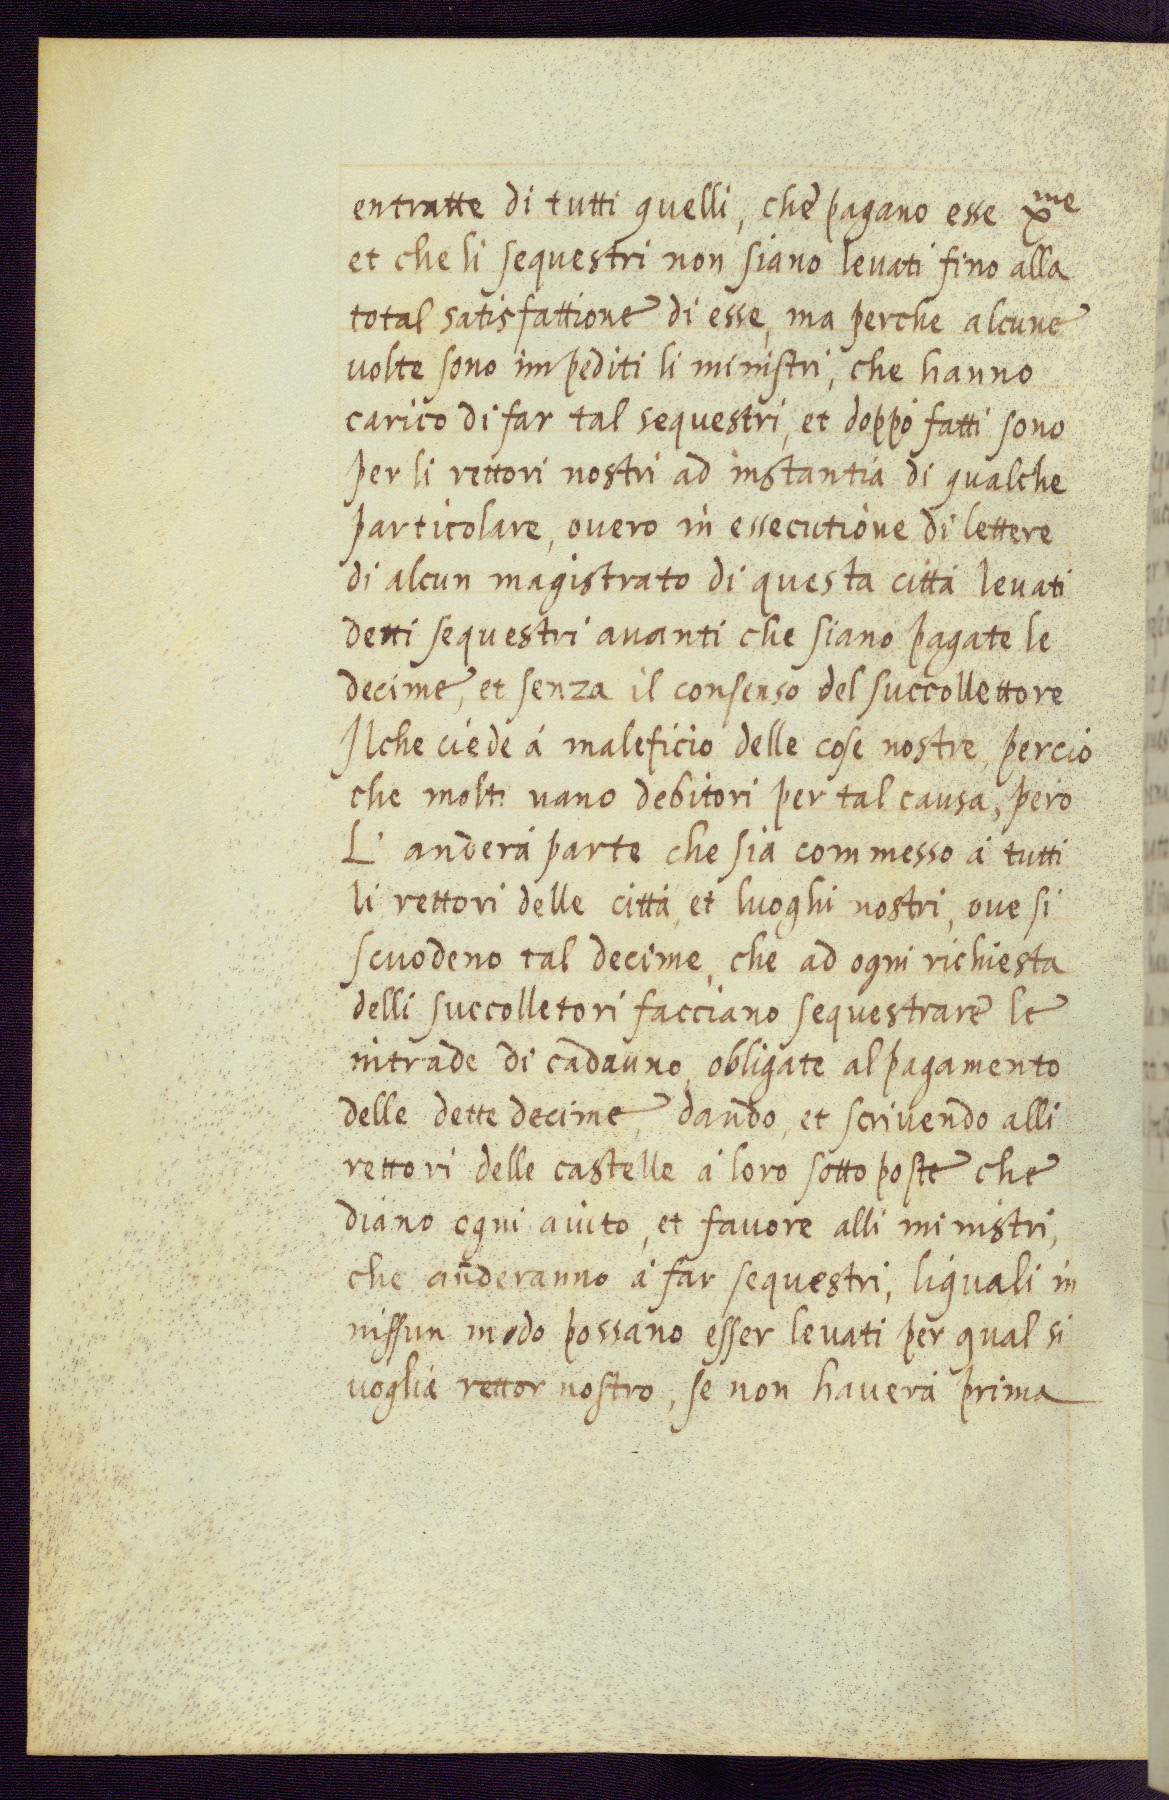 entratte di tutti quelli, che pagano esse x^me
et che li sequestri non siano levati fino alla
total satisfattione di esse, ma perche alcune
volte sono impediti li ministri, che hanno
carico di far tal sequestri, et doppò fatti sono
per li rettori nostri ad instantia di qualche
particolare, overo in essecutione di lettere
di alcun magistrato di questa città levati
detti sequestri avanti che siano pagate le
decime, et senza il consenso del succollettore
Ilche ciede à maleficio delle cose nostre, percio
che molti vano debitori per tal causa, però
L' anderà parte che sia commesso à tutti
li rettori delle città, et luoghi nostri, ove si
scuodeno tal decime, che ad ogni richiesta
delli succolletori facciano sequestrare le
intrade di cadauno, obligate al pagamento
delle dette decime, dando, et scrivendo alli
rettori delle castelle à loro sottoposte che
diano ogni aiuto, et favore alli ministri,
che anderanno à far sequestri, liquali in
nissun modo possano esser levati per qual si
voglia rettor nostro, se non haverà prima